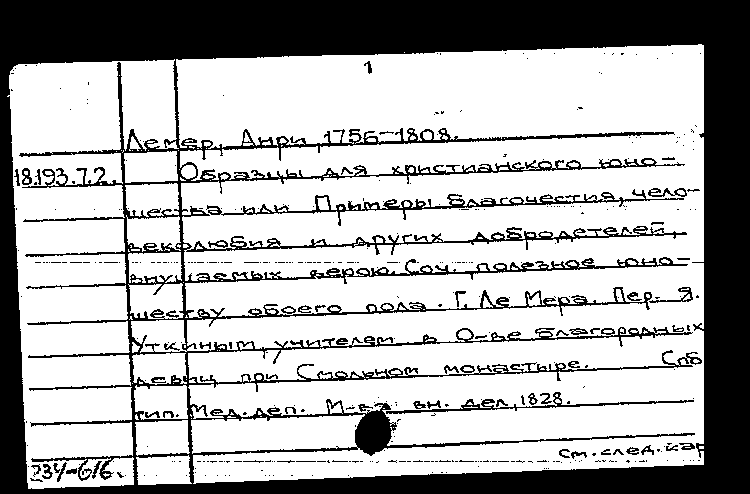 1
Лемер, Анри, 1756-1808.
18.193.7.2. Образцы для христианского юно-
шества или Примеры благочестия, чело-
веколюбия и других добродетелей,
внушаемых верою. Соч., полезное юно-
шеству обоего пола. Г. Ле Мера. Пер. Я.
Уткиным, учителем в О-ве благородных
девиц при Смольном монастыре. Спб
тип. Мед. деп. М-ва вн. дел, 1828.
см. след. кар
234-616.